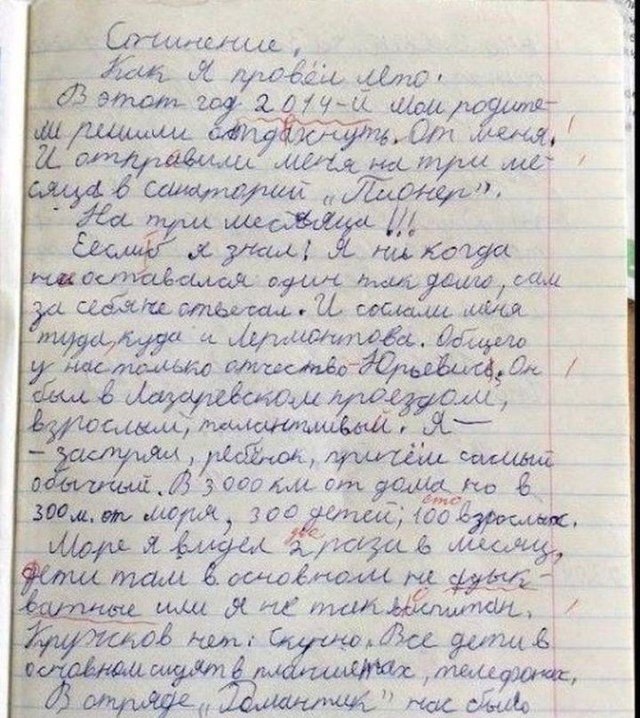 Сочинение.
Как я провёл лето.
В этот год 2014-й мои родите-
ли решили отдохнуть. От меня.
И отправили меня на три ме-
сяца в санаторий „Пионер".
На три месяца!!!
Еслиб я знал! Я ни когда
не оставался один так долго, сам
за себя не отвечал. И сослали меня
туда, куда и Лермонтова. Общего
у нас только отчество - Юрьевич. Он
был в Лазаревском проездом,
взрослый, талантливый. Я —
– застрял, ребёнок, причём самый
обычный. В 3000 км от дома но в
сто
300 м. от моря, 300 детей, 100 взрослых.
два
Море я видел 2 раза в месяц,
дети там в основном не адык-
ватные или я не так воспитан.
Кружков нет. Скучно. Все дети в
основном сидят в планшетах, телефонах.
В отряде „Романтик" нас было